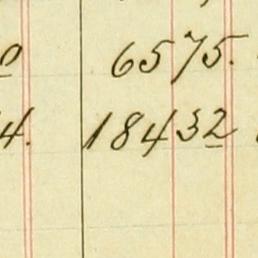 0 6575.
4. 18432